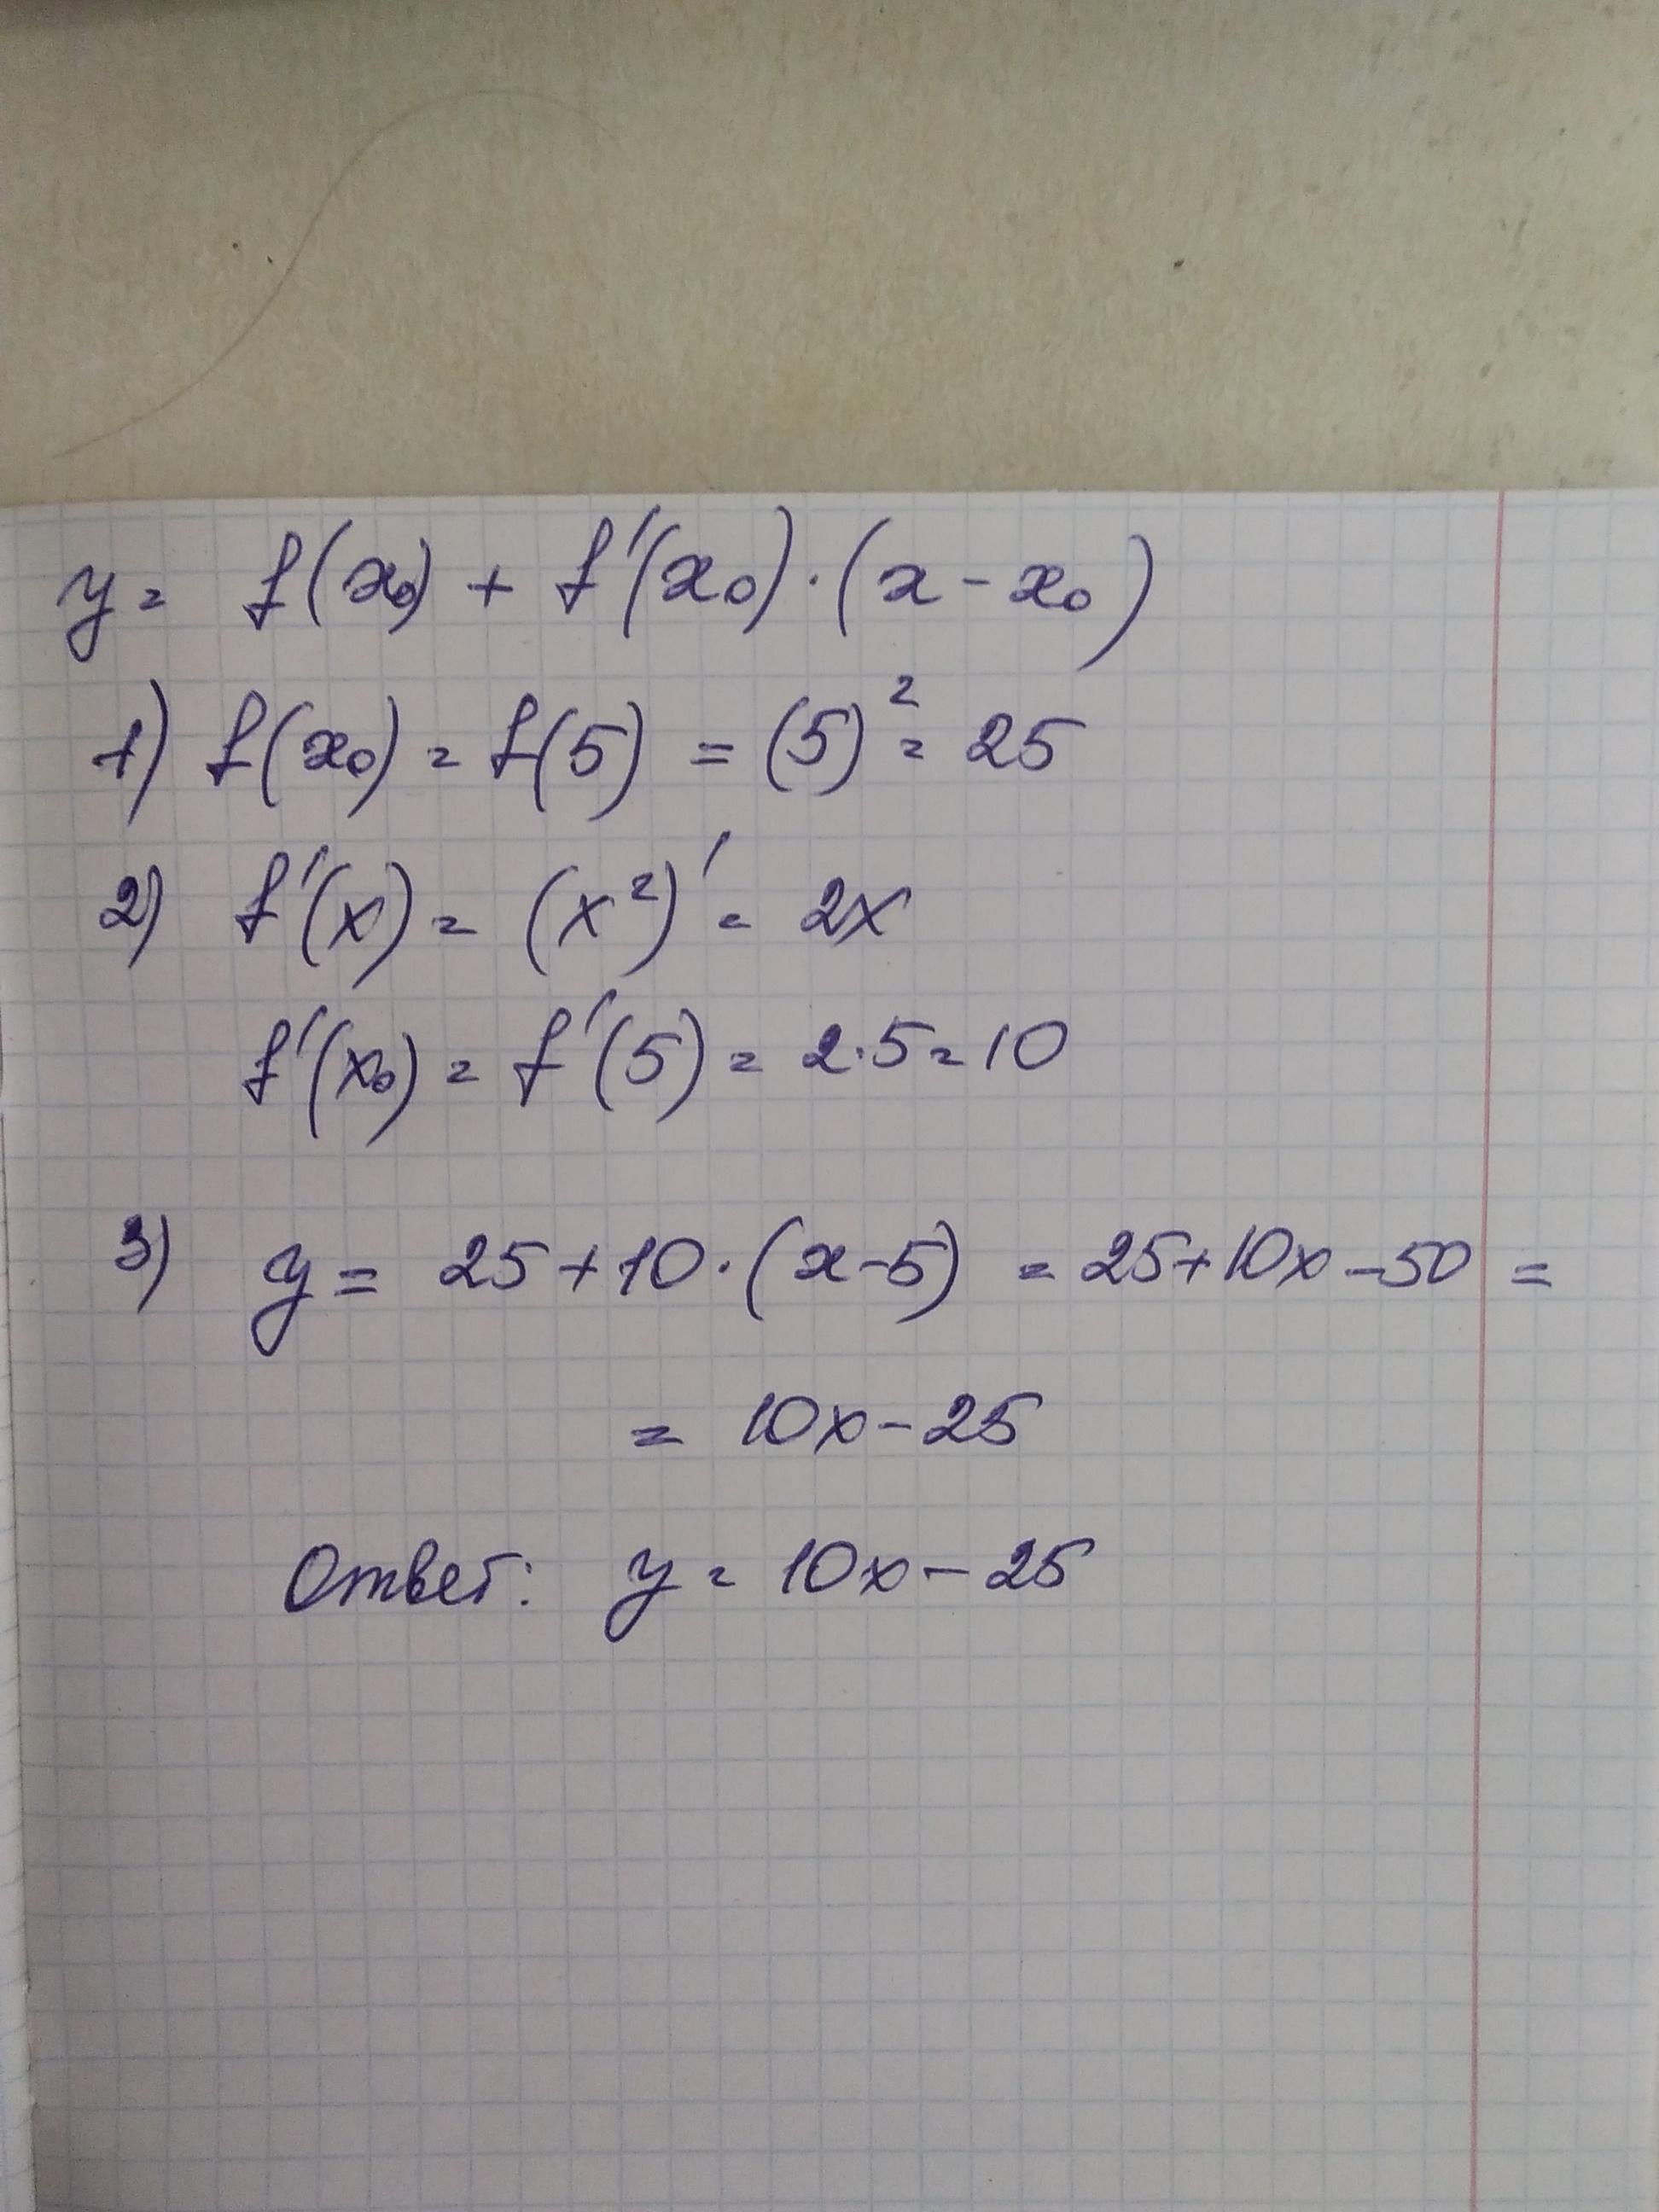 y = f(x₀) + f'(x₀)·(x - x₀)
1) f(x₀) = f(5) = (5)² = 25
2) f'(x) = (x²)' = 2x
f'(x₀) = f'(5) = 2·5 = 10
3) y = 25 + 10·(x - 5) = 25 + 10x - 50 =
= 10x - 25
Ответ: y = 10x - 25